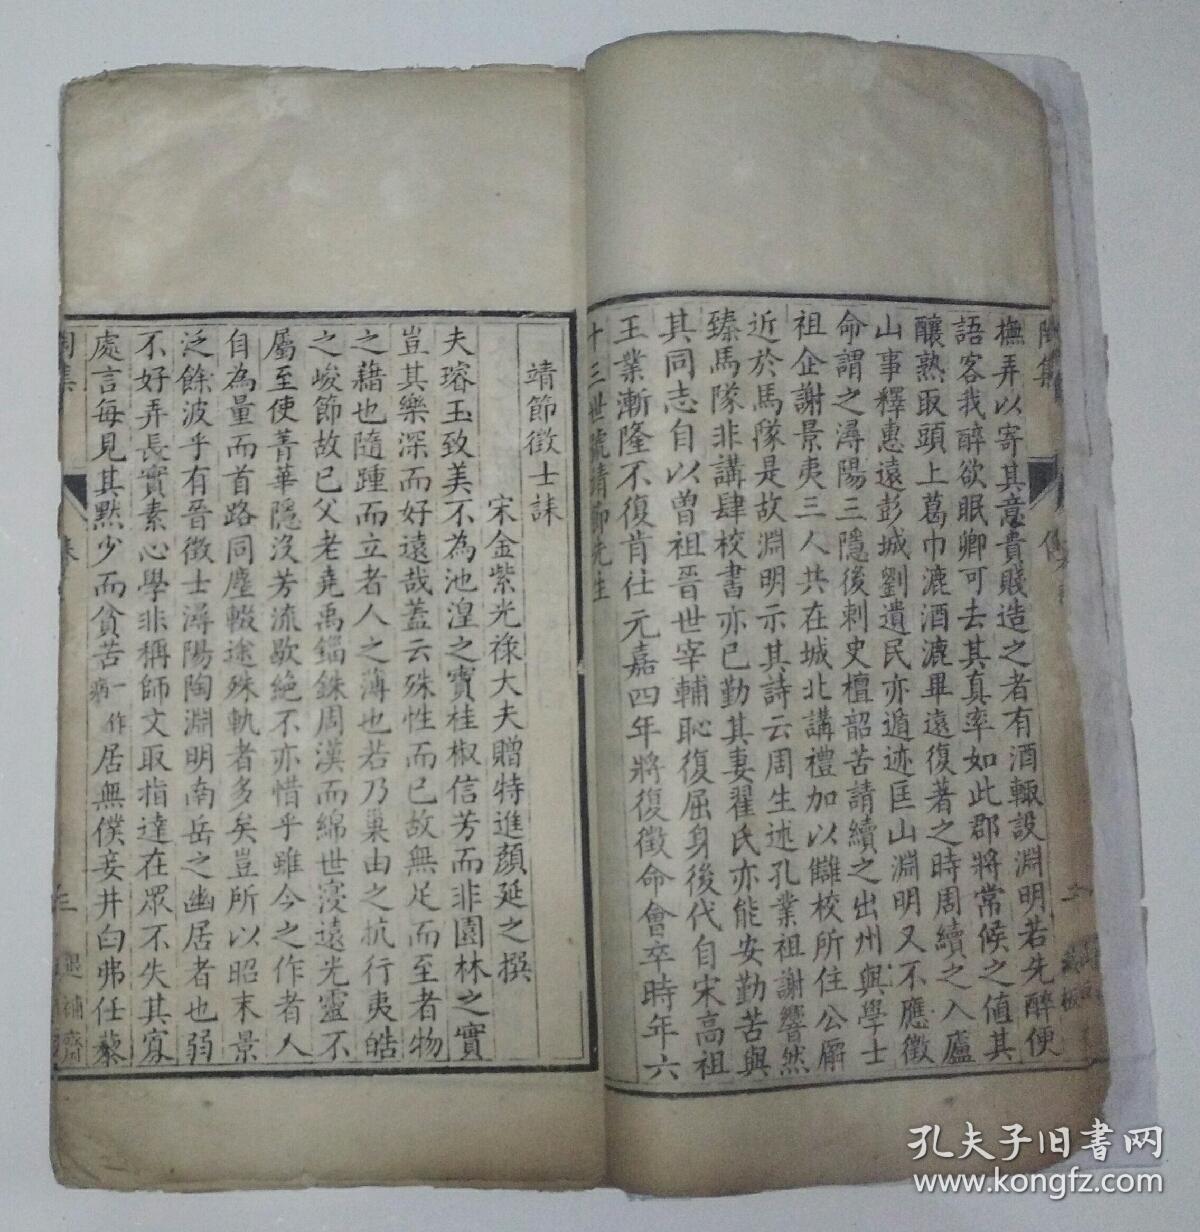 陶集
撫弄以寄其意貴賤造之者有酒輙設淵明若先醉便
語客我醉欲眠卿可去其真率如此郡將常候之值其
釀熟取頭上葛巾漉酒漉畢遠復著之時周續之入廬
山事釋惠遠彭城劉遺民亦遁迹匡山淵明又不應徵
命謂之潯陽三隱後刺史檀韶苦請續之出州與學士
祖企謝景夷三人共在城北講禮加以讎校所住公廨
近於馬隊是故淵明示其詩云周生述孔業祖謝響然
臻馬隊非講肆校書亦已勤其妻翟氏亦能安勤苦與
其同志自以曾祖晉世宰輔恥復屈身後代自宋高祖
王業漸隆不復肯仕元嘉四年將復徵命會卒時年六
十三世號靖節先生
靖節徵士誄
宋金紫光祿大夫贈特進顏延之撰
夫璿玉致美不為池湟之寶桂椒信芳而非園林之實
豈其樂深而好遠哉蓋云殊性而已故無足而至者物
之藉也隨踵而立者人之薄也若乃巢由之抗行夷皓
之峻節故已父老堯禹錙銖周漢而綿世寖遠光靈不
屬至使菁華隱沒芳流歇絕不亦惜乎雖今之作者人
自為量而首路同塵輟途殊軌者多矣豈所以昭末景
泛餘波乎有晉徵士潯陽陶淵明南岳之幽居者也弱
不好弄長實素心學非稱師文取指達在眾不失其寡
處言每見其默少而貧苦一作病居無僕妾井臼弗任藜
陶集 三
孔夫子旧书网
www.kongfz.com